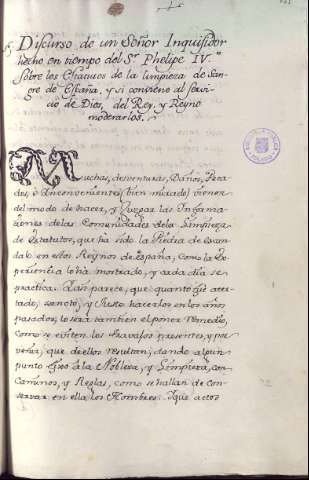 Discurso de un Señor Inquisidor
hecho en tiempo del Sr. Phelipe IV.
sobre los Estatutos de la limpieza de San-
gre de España, y si conviene al servi-
cio de Dios, del Rey, y Reyno
moderarlos.
Muchas, desventuras, Daños, Peca-
dos, e Inconvenientes (bien mirado) vienen
del modo de hacer, y Juzgar las Informa-
ziones de las Comunidades de la Limpieza
de Estatutos, que ha sido la Piedra de escan-
dalo en estos Reynos de España, como la Ex-
periencia lo ha mostrado, y cada dia se
practica. Y me parece, que quanto fue acer-
tado, sancto, y Justo hacerlos en los años
pasados, lo sera tambien el poner remedio,
como se eviten los travajos presentes, y por
venir, que de ellos resultan; dando algun
punto fixo à la Nobleza, y Limpieza, con
Caminos, y Reglas, como se hallan de con-
servar en ella los Hombres. Y que actos